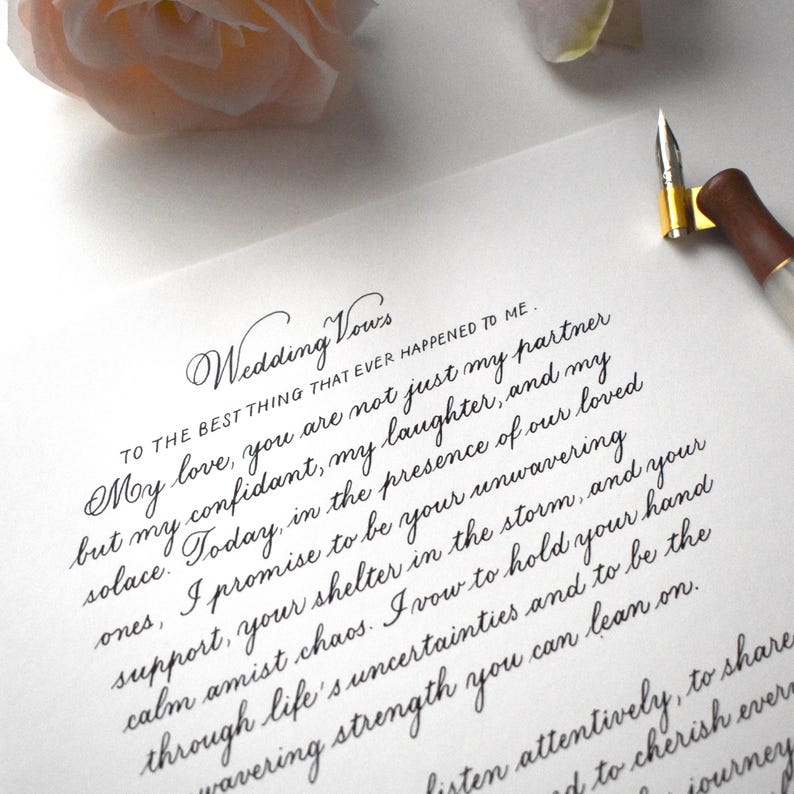 Wedding Vows
TO THE BEST THING THAT EVER HAPPENED TO ME.
My love, you are not just my partner
but my confidant, my laughter, and my
solace. Today, in the presence of our loved
ones, I promise to be your unwavering
support, your shelter in the storm, and your
calm amist chaos. I vow to hold your hand
through life's uncertainties and to be the
wavering strength you can lean on.
listen attentively, to share
to cherish every
journey